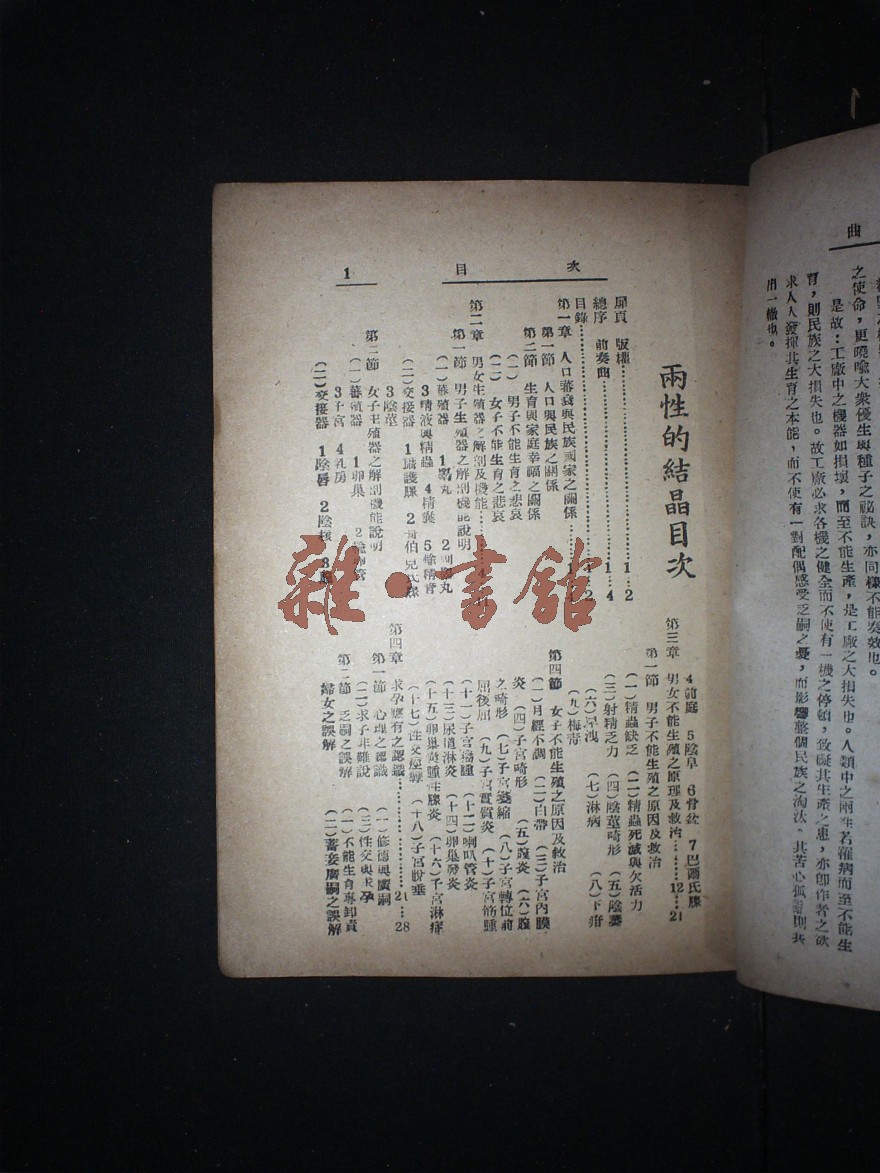 曲
之使命，更曉喻大衆優生與種子之祕訣，亦同樣不能奏效也。
是故：工廠中之機器如損壞，而至不能生產，是工廠之大損失也。人類中之兩性若罹病而至不能生
育，則民族之大損失也。故工廠必求各機之健全而不使有一機之停頓，致礙其生產之患，亦卽作者之欲
求人人發揮其生育之本能，而不使有一對配偶感受乏嗣之憂，而影響整個民族之淘汰。其苦心孤詣則共
用一轍也。
次目
1
兩性的結晶目次
扉頁 版權……1……2
總序 前奏曲……1……4
目錄……2
第一章 人口蕃衍與民族國家之關係……1
第一節 人口與民族之關係
第二節 生育與家庭幸福之關係
（一）男子不能生育之悲哀
（二）女子不能生育之悲哀
第二章 男女生殖器之解剖及機能……4
第一節 男子生殖器之解剖機能說明
（一）蕃殖器 1睪丸 2副睪丸
3精液與精蟲 4精囊 5輸精管
（二）交接器 1攝護腺 2哥伯兒氏腺
3陰莖
第二節 女子生殖器之解剖機能說明
（一）蕃殖器 1卵巢 2輸卵管
3子宮 4乳房
（二）交接器 1陰唇 2陰核 3
4前庭 5陰阜 6骨盆 7巴爾氏腺
第三章 男女不能生殖之原理及救治……12……21
第一節 男子不能生殖之原因及救治
（一）精蟲缺乏 （二）精蟲死滅與欠活力
（三）射精乏力 （四）陰莖畸形 （五）陰萎
（六）早洩 （七）淋病 （八）下疳
（九）梅毒
第四節 女子不能生殖之原因及救治
（一）月經不調 （二）白帶 （三）子宮內膜
炎 （四）子宮畸形 （五）膣炎 （六）膣
之畸形 （七）子宮萎縮 （八）子宮轉位前
屈後屈 （九）子宮實質炎 （十）子宮筋腫
（十一）子宮瘍腫 （十二）喇叭管炎
（十三）尿道淋炎 （十四）卵巢發炎
（十五）卵巢囊腫性腺炎 （十六）子宮淋症
（十七）性交痙攣 （十八）子宮脫垂
第四章 求孕應有之認識……21……28
第一節 心理之認識 （一）修德與廣嗣
（二）求子非難說 （三）性交與求孕
第二節 乏嗣之誤解 （一）不能生育專卸責
婦女之誤解 （二）蓄妾廣嗣之誤解
雜·書館